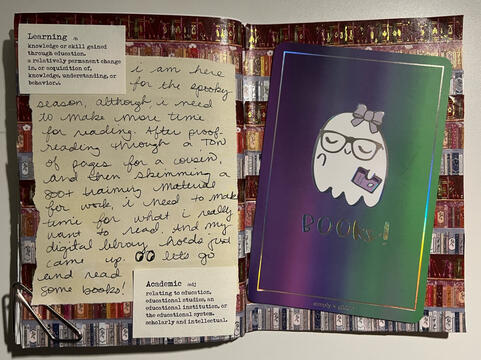 Learning n
knowledge or skill gained
through education.
a relatively permanent change
in, or acquisition of,
knowledge, understanding, or
behavior.
i am here
for the spooky
season, although, i need
to make more time
for reading. After proof-
reading through a TON
of pages for a cousin,
and then skimming a
800+ training material
for work, i need to make
time for what i really
want to read. And my
digital library holds just
came up. let's go
and read
some books!
Academic adj
relating to education,
educational studies, an
educational institution, or
the educational system.
scholarly and intellectual.
BOOks!